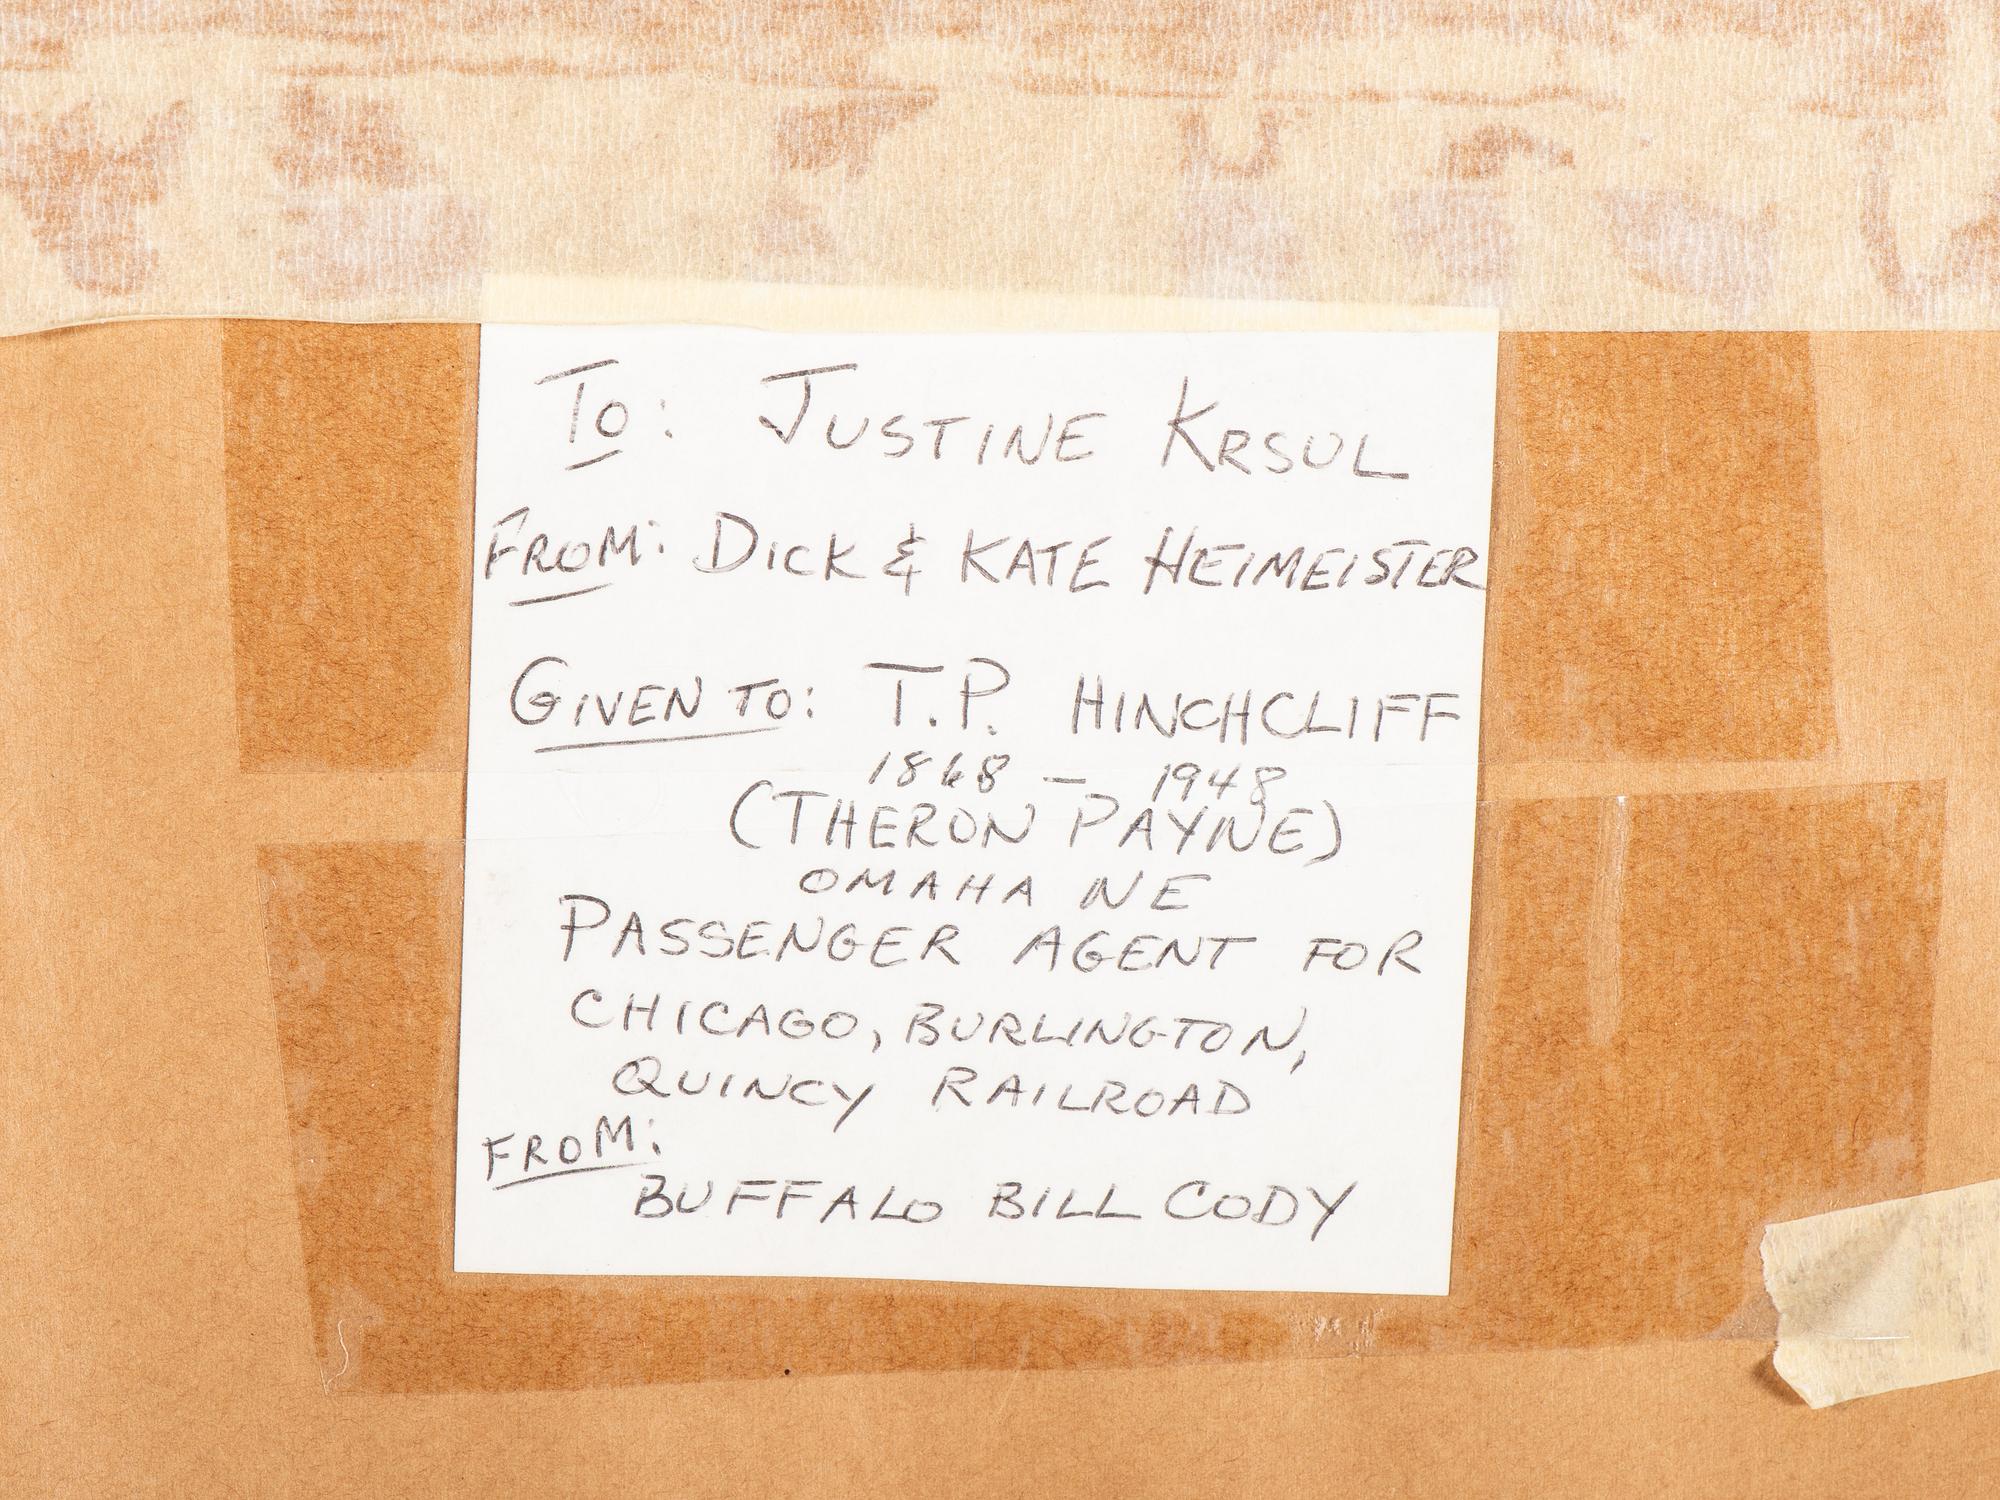 To: JUSTINE KRSUL
FROM: DICK & KATE HEIMEISTER
GIVEN TO: T.P. HINCHCLIFF
1868 — 1948
(THERON PAYNE)
OMAHA NE
PASSENGER AGENT FOR
CHICAGO, BURLINGTON,
QUINCY RAILROAD
FROM:
BUFFALO BILL CODY